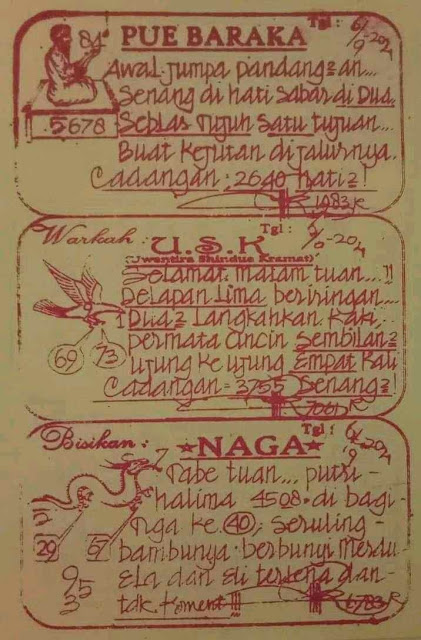 PUE BARAKA
Tgl : 6/9-202
84
5678
Awal jumpa pandang2an...
Senang di hati sabar di Dua.
Seblas Tujuh Satu tujuan...
Buat kejutan dijalurnya.
Cadangan : 2640 hati2!
1983 R
Warkah : U.S.K
Tgl :
(Uwentira Shindue Kramat)
Selamat malam tuan...!!
Delapan Lima beriringan...
1 Dua2 Langkahkan Kaki..
permata cincin Sembilan2
69 73
Ujung ke ujung Empat Kali
Cadangan = 3755 Senang2!
Bisikan : NAGA
Tgl : 6/9-202
7
Tabe tuan... putri-
halima 4508 di bagi-
nga ke (40), seruling-
29 57
bambunya berbunyi merdu
95
3
Ela dan Eli terlena dan-
tdk. Koment !!!
1983 R